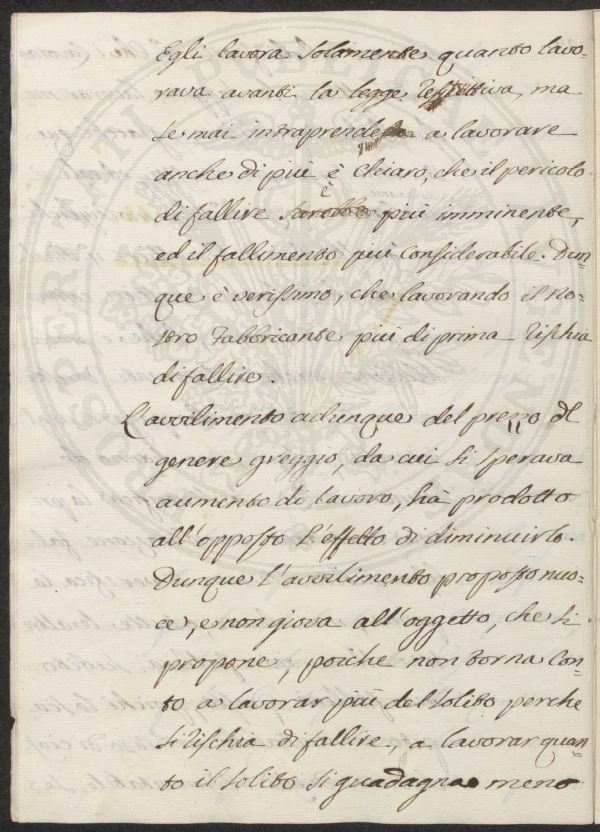 Egli lavora solamente quanto lavo-
rava avanti la legge restrittiva, ma
se mai intraprende a lavorare
anche di più è chiaro, che il pericolo
di fallire è più imminente,
ed il fallimento più considerabile. Dun-
que è verissimo, che lavorando il no-
stro Fabbricante più di prima rischia
di fallire.
L'avvilimento adunque del prezzo del
genere greggio, da cui si sperava
aumento di lavoro, ha prodotto
all'opposto l'effetto di diminuirlo.
Dunque l'avvilimento proposto nuo-
ce, e non giova all'oggetto, che si
propone, poiche non torna con-
to a lavorar più del solito perche
si rischia di fallire, a lavorar quan-
to il solito si guadagna meno